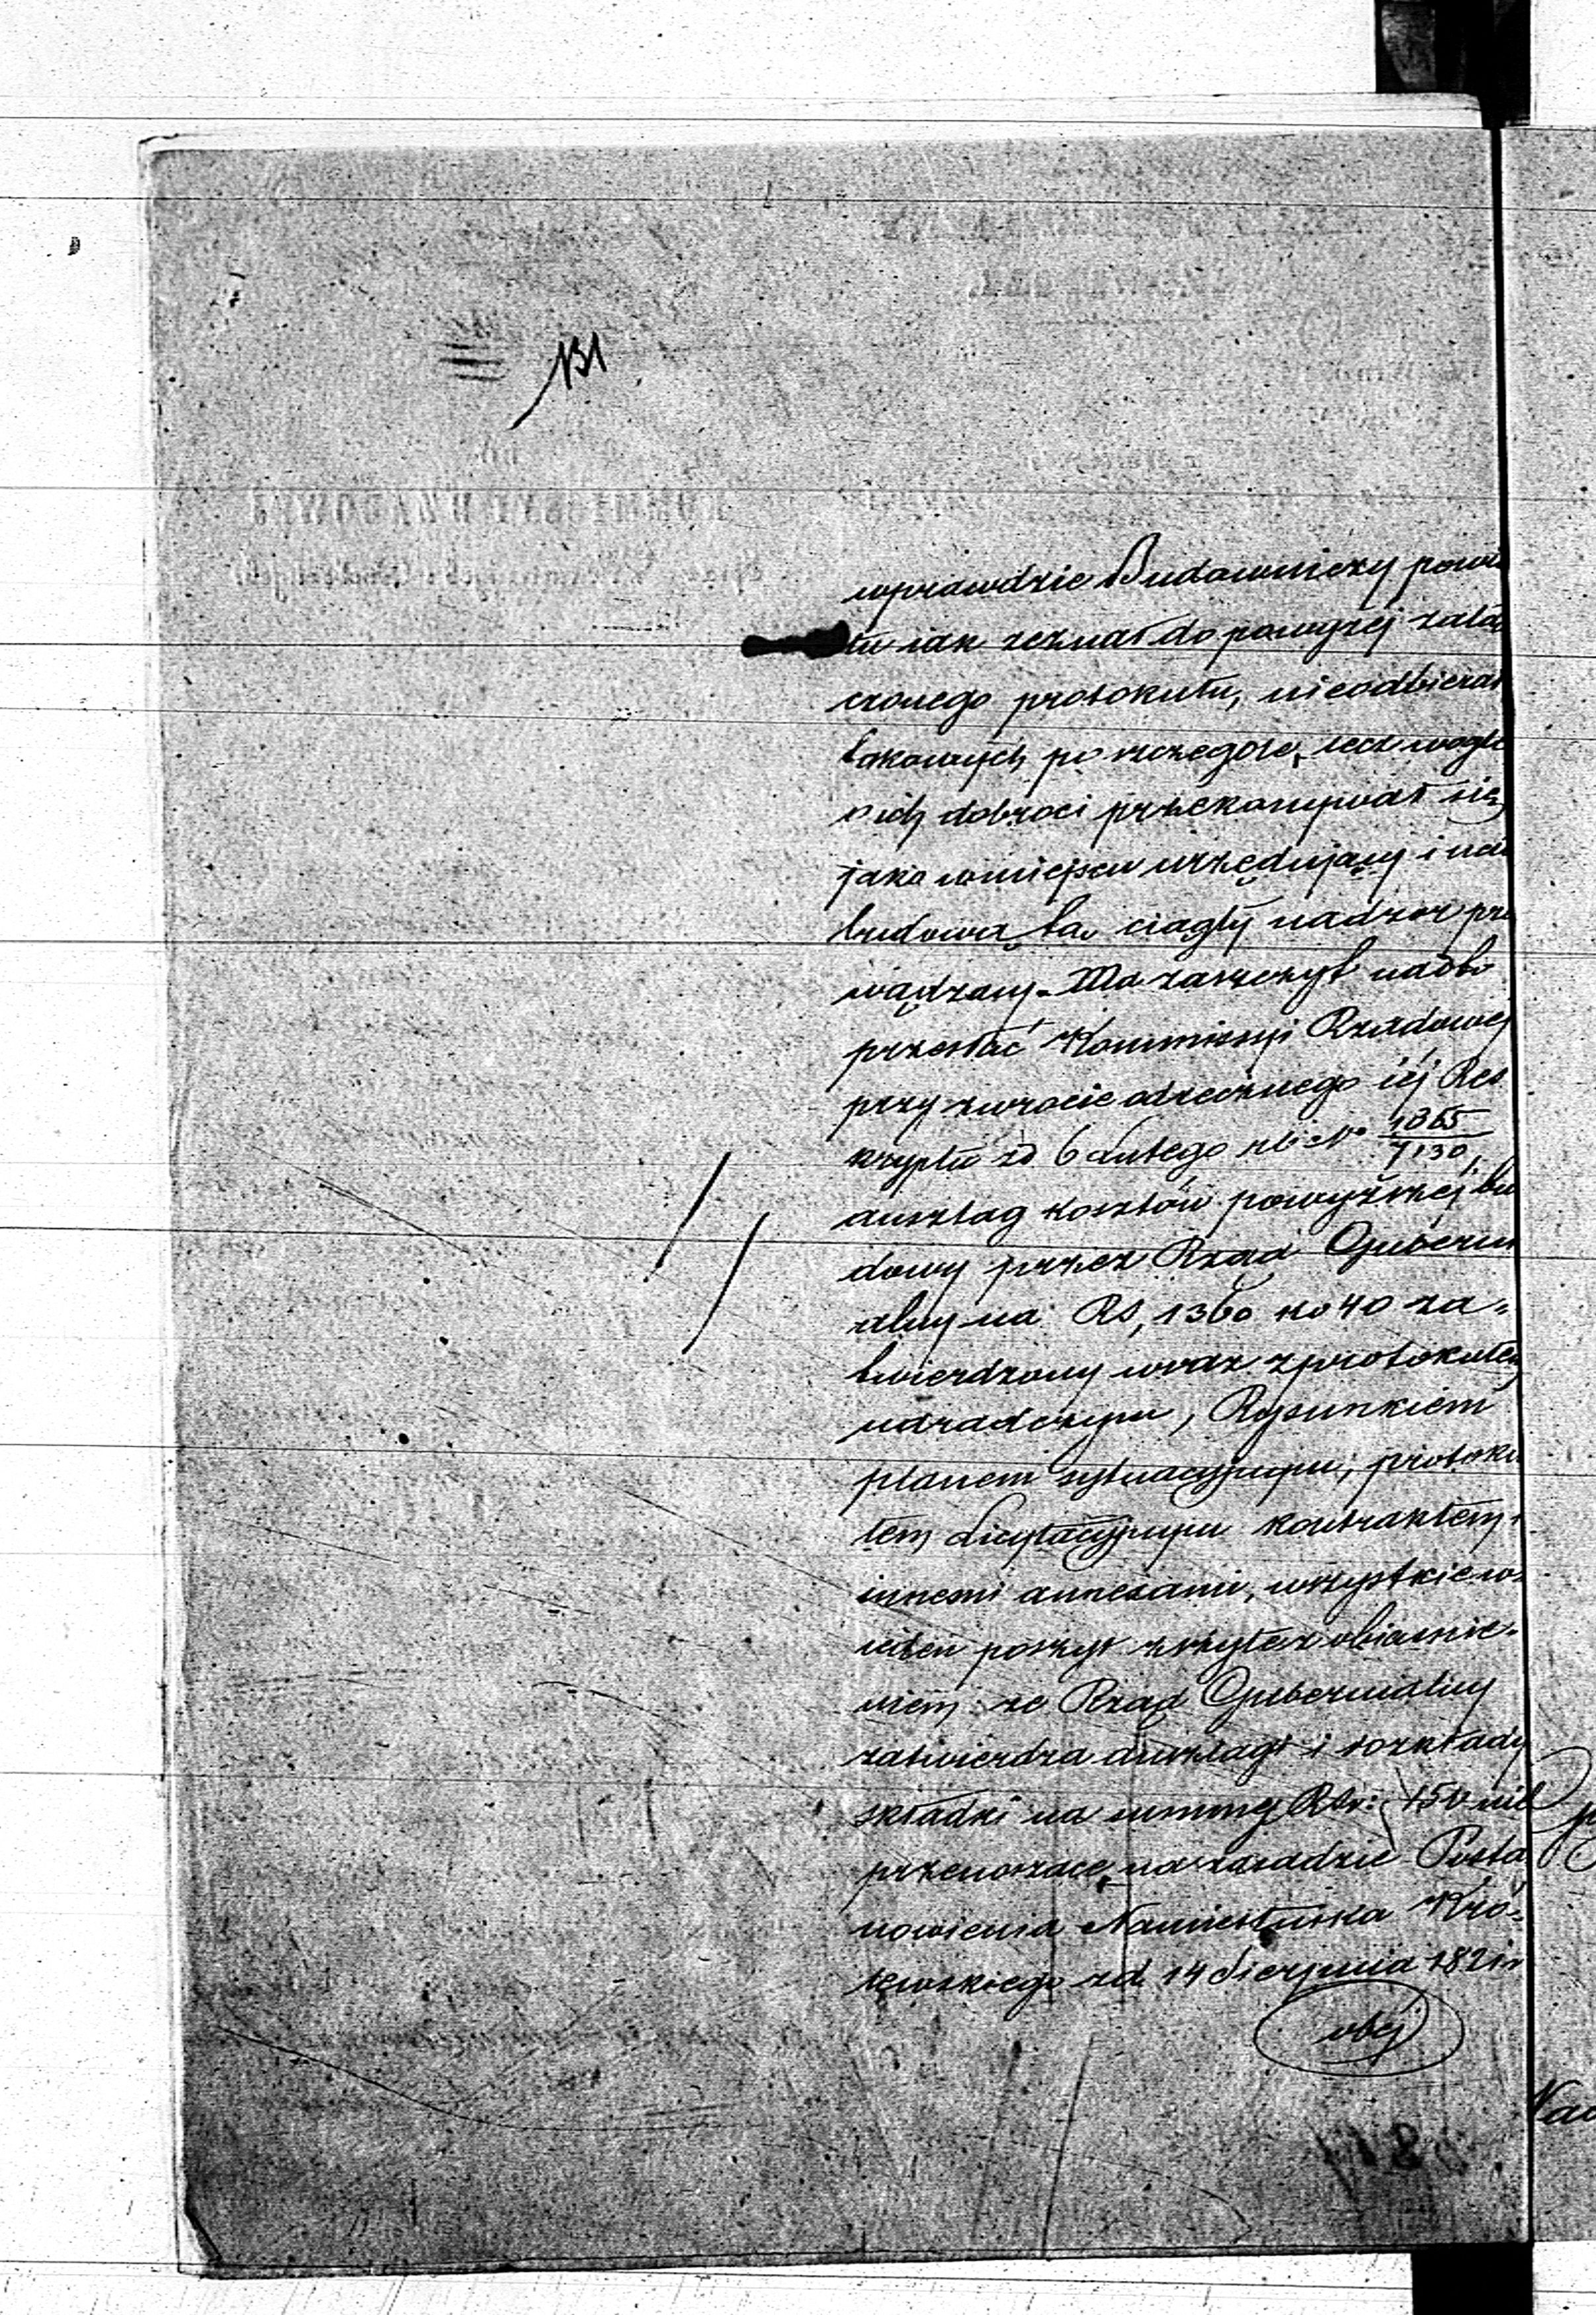 131
wprawdzie Budowniczy powia
tu iak zeznał do powyżej załą
czonego protokułu, nieodbierał
takowych po szczególe, lecz wogle
o ich dobroci przekonywał się
jako wmiejscu urzędujący i nad
budową tą ciągły nadzor pro
wadzący. Ma zaszczyt nadto
przesłać Kommissyi Rządowej
przy zwrocie odręcznego iéj Res
kryptu z d 6 Lutego rb: No 1365/7130,
anszlag kosztów powyższej bu
dowy przez Rząd Guberni
alny na RS, 1360 ko 40 za-
twierdzony wraz z protokułem
udradczym, Rysunkiem
planem sytuacyjnym, protoku
łem Licytacyjnym kontraktem i
innemi annexami, wszystkie w
ieden poszyt zszyte z obiaśnie-
niem że Rząd Gubernialny
zatwierdza anszlagi i rozkłady
składki na summę RSr: 450 nie
przenoszące na zasadzie Posta
nowienia Namiestnika Kró-
lewskiego z d 14 Sierpnia 1821 r
obej